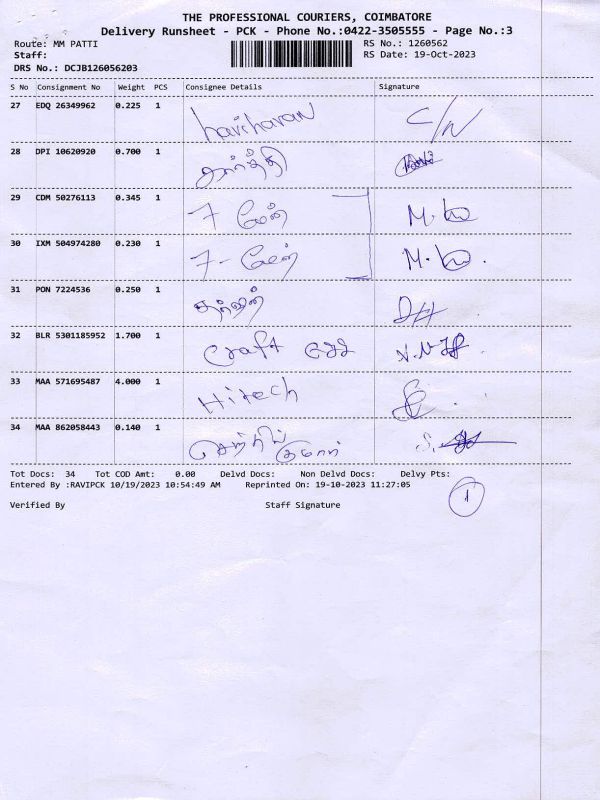 THE PROFESSIONAL COURIERS, COIMBATORE
Delivery Runsheet - PCK - Phone No.:0422-3505555 - Page No.:3
Route: MM PATTI RS No.: 1260562
Staff: RS Date: 19-Oct-2023
DRS No.: DCJB126056203
S No Consignment No Weight PCS Consignee Details Signature
27 EDQ 26349962 0.225 1 hariharan
28 DPI 10620920 0.700 1 கார்த்தி
29 CDM 50276113 0.345 1 7
30 IXM 504974280 0.230 1 7 -
31 PON 7224536 0.250 1
32 BLR 5301185952 1.700 1 Craft
33 MAA 571695487 4.000 1 Hitech
34 MAA 862058443 0.140 1
Tot Docs: 34 Tot COD Amt: 0.00 Delvd Docs: Non Delvd Docs: Delvy Pts:
Entered By :RAVIPCK 10/19/2023 10:54:49 AM Reprinted On: 19-10-2023 11:27:05
1
Verified By Staff Signature